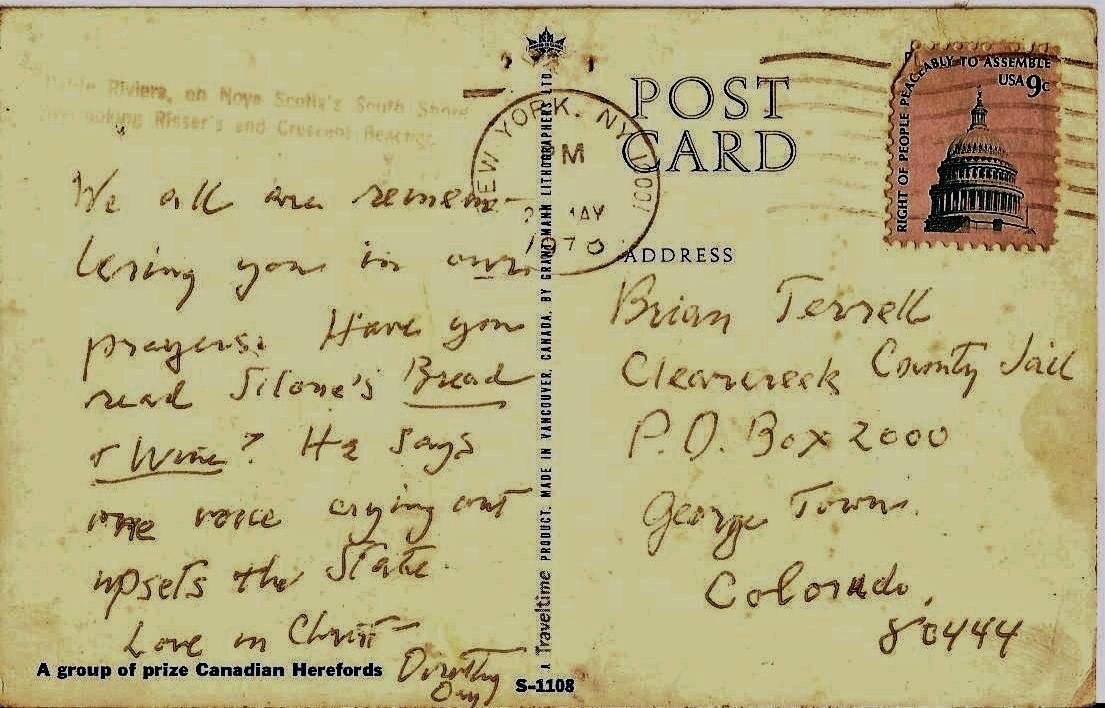 Riviera, on Nova Scotia's South Shore
Risser's and Crescent Beaches.
We all are remem-
bering you in our
prayers. Have you
read Silone's Bread
& Wine? He says
one voice crying out
upsets the State.
Love in Christ—
Dorothy
Day
A group of prize Canadian Herefords
S-1108
A Traveltime PRODUCT. MADE IN VANCOUVER, CANADA, BY GRANT-MANN LITHOGRAPHERS LTD.
NEW YORK, NY 1001
M
MAY
POST
CARD
RIGHT OF PEOPLE PEACEABLY TO ASSEMBLE
USA 9c
ADDRESS
Brian Terrell
Clearcreek County Jail
P.O. Box 2000
George Town.
Colorado,
80444